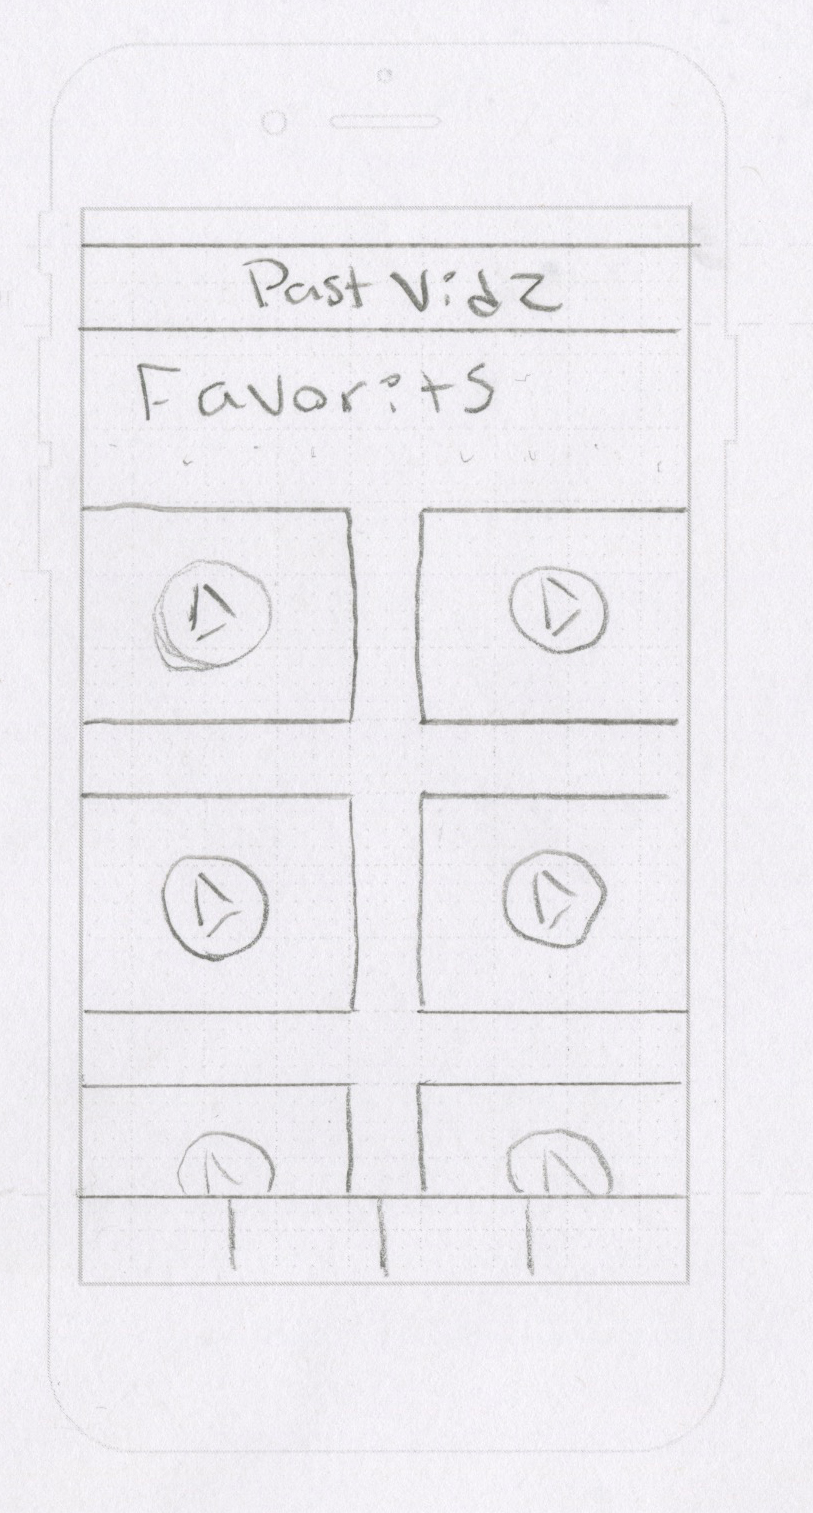 Past Vidz
Favorits